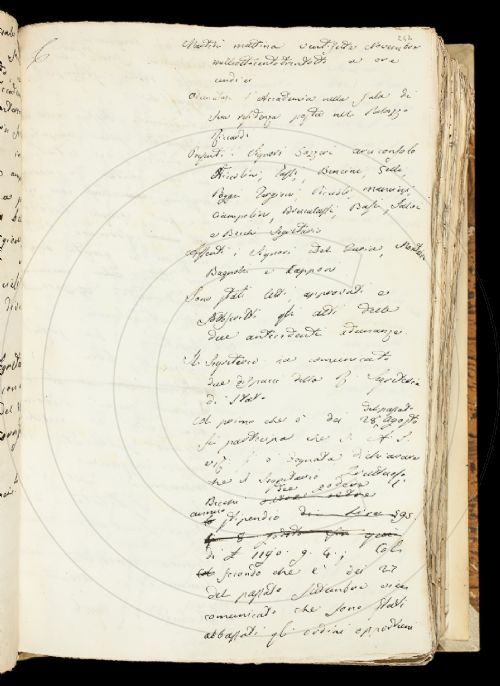 262
Martedì mattina ventisette Novembre
milleottocentotrentotto a ore
undici
Adunatasi l'Accademia nella Sala di
sua residenza posta nel Palazzo
Riccardi
Presenti i Signori Gazzeri arciconsolo
Niccolini, Taffi, Bencini, Gelli
Poggi Targioni, Piccioli,
Ciampolini, Brucalassi, Basi,
e Becchi Segretario
Assenti i Signori Del Furia,
Bagnoli e Capponi
Sono stati letti, approvati e
sottoscritti gli atti delle
due antecedenti adunanze
Il Segretario ha comunicato
due dispacci della R. Segreteria
di Stato
Col primo che è dei 28 Agosto
del passato
si partecipa che S. A. S.
si è degnata dichiarare
che il Segretario
Becchi
annuo
stipendio di Lire
di
di £ 1190. 9. 4; Col
secondo che è dei 27
del passato Settembre vien
comunicato che sono stati
abbassati gli ordini opportuni